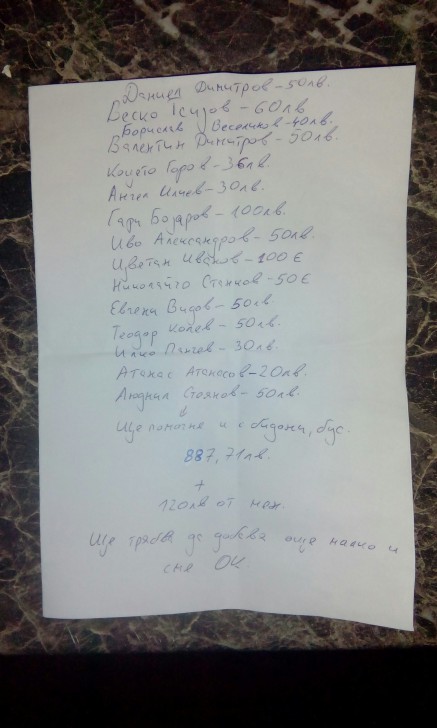 Даниел Димитров - 50лв.
Веско - 60лв
Борислав Веселинов - 40лв.
Валентин Димитров - 50лв.
Коцето Горов - 36лв.
Ангел Илчев - 30лв.
Гари Бозаров - 100лв.
Иво Александров - 50лв.
Цветан Иванов - 100 €
Николайчо Станков - 50 €
Евгени Видов - 50лв.
Теодор Колев - 50лв.
Илко Панчев - 30лв.
Атанас Атанасов - 20лв.
Людмил Стоянов - 50лв.
Ще помогне и с бидони, бус.
887,71лв.
+
120лв от мен.
Ще трябва да добавя още малко и
сме ОК.